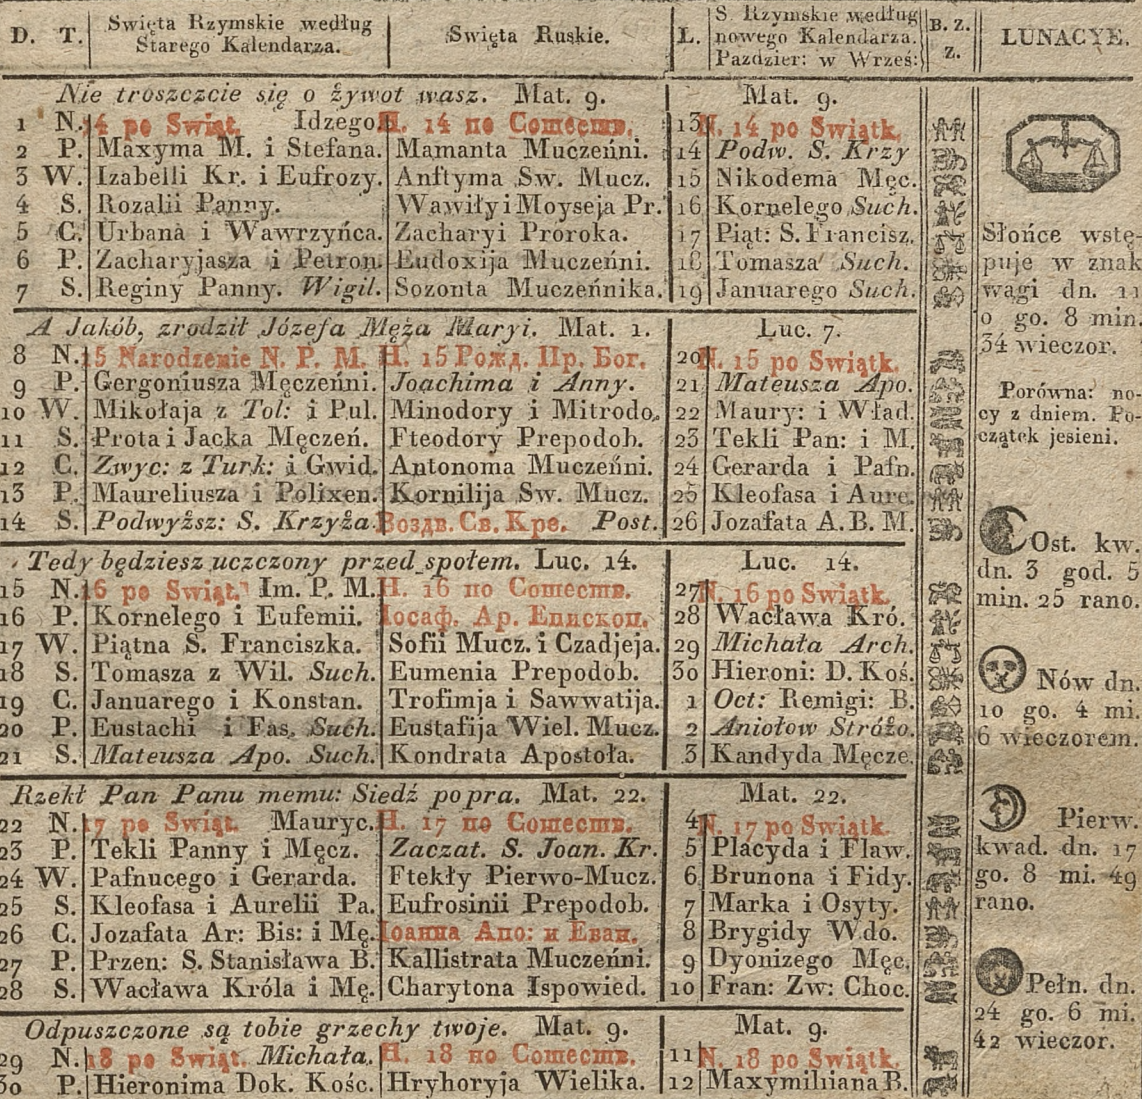 D. T. Swięta Rzymskie według Starego Kalendarza. Swięta Ruskie. L. S. Rzymskie według nowego Kalendarza. Pazdzier: w Wrześ: B. Z. Z. LUNACYE.
Nie troszczcie się o żywot wasz. Mat. 9. Mat. 9.
1 N. 14 po Swiąt. Idzego. Н. 14 по Сошеств. 13 N. 14 po Swiątk.
2 P. Maxyma M. i Stefana. Mamanta Muczeńni. 14 Podw. S. Krzy
3 W. Izabelli Kr. i Eufrozy. Anftyma Sw. Mucz. 15 Nikodema Męc.
4 S. Rozalii Panny. Wawiły i Moyseja Pr. 16 Kornelego Such.
5 C. Urbana i Wawrzyńca. Zacharyi Proroka. 17 Piąt: S. Francisz.
6 P. Zacharyjasza i Petron. Eudoxija Muczeńni. 18 Tomasza Such.
7 S. Reginy Panny. Wigil. Sozonta Muczeńnika. 19 Januarego Such.
A Jakób, zrodził Józefa Męża Maryi. Mat. 1. Luc. 7.
8 N. 15 Narodzenie N. P. M. Н. 15 Рожд. Пр. Бог. 20 N. 15 po Swiątk.
9 P. Gergoniusza Męczeńni. Joachima i Anny. 21 Mateusza Apo.
10 W. Mikołaja z Tol: i Pul. Minodory i Mitrodo. 22 Maury: i Wład.
11 S. Prota i Jacka Męczeń. Fteodory Prepodob. 23 Tekli Pan: i M.
12 C. Zwyc: z Turk: i Gwid. Antonoma Muczeńni. 24 Gerarda i Pafn.
13 P. Maureliusza i Polixen. Kornilija Sw. Mucz. 25 Kleofasa i Aure.
14 S. Podwyższ: S. Krzyża. Воздв. Св. Кре. Post. 26 Jozafata A. B. M.
Tedy będziesz uczczony przed społem. Luc. 14. Luc. 14.
15 N. 16 po Swiąt. Im. P. M. Н. 16 по Сошеств. 27 N. 16 po Swiątk.
16 P. Kornelego i Eufemii. Іосаф. Ар. Епископ. 28 Wacława Kró.
17 W. Piątna S. Franciszka. Sofii Mucz. i Czadjeja. 29 Michała Arch.
18 S. Tomasza z Wil. Such. Eumenia Prepodob. 30 Hieroni: D. Koś.
19 C. Januarego i Konstan. Trofimja i Sawwatija. 1 Oct: Remigi: B.
20 P. Eustachi i Fas. Such. Eustafija Wiel. Mucz. 2 Aniołow Stróżo.
21 S. Mateusza Apo. Such. Kondrata Apostoła. 3 Kandyda Męcze.
Rzekł Pan Panu memu: Siedź po pra. Mat. 22. Mat. 22.
22 N. 17 po Swiąt. Mauryc. Н. 17 по Сошеств. 4 N. 17 po Swiątk.
23 P. Tekli Panny i Męcz. Zaczat. S. Joan. Kr. 5 Placyda i Flaw.
24 W. Pafnucego i Gerarda. Ftekły Pierwo-Mucz. 6 Brunona i Fidy.
25 S. Kleofasa i Aurelii Pa. Eufrosinii Prepodob. 7 Marka i Osyty.
26 C. Jozafata Ar: Bis: i Mę. Іоанна Апо: и Еван. 8 Brygidy Wdo.
27 P. Przen: S. Stanisława B. Kallistrata Muczeńni. 9 Dyonizego Męc.
28 S. Wacława Króla i Mę. Charytona Ispowied. 10 Fran: Zw: Choc.
Odpuszczone są tobie grzechy twoje. Mat. 9. Mat. 9.
29 N. 18 po Swiąt. Michała. Н. 18 по Сошеств. 11 N. 18 po Swiątk.
30 P. Hieronima Dok. Kośc. Hryhoryja Wielika. 12 Maxymiliiana B.
Słońce wstę-
puje w znak
wagi dn. 11
o go. 8 min.
34 wieczor.
Porówna: no-
cy z dniem. Po-
czątek jesieni.
Ost. kw.
dn. 3 god. 5
min. 25 rano.
Nów dn.
10 go. 4 mi.
6 wieczorem.
Pierw.
kwad. dn. 17
go. 8 mi. 49
rano.
Pełn. dn.
24 go. 6 mi.
42 wieczor.